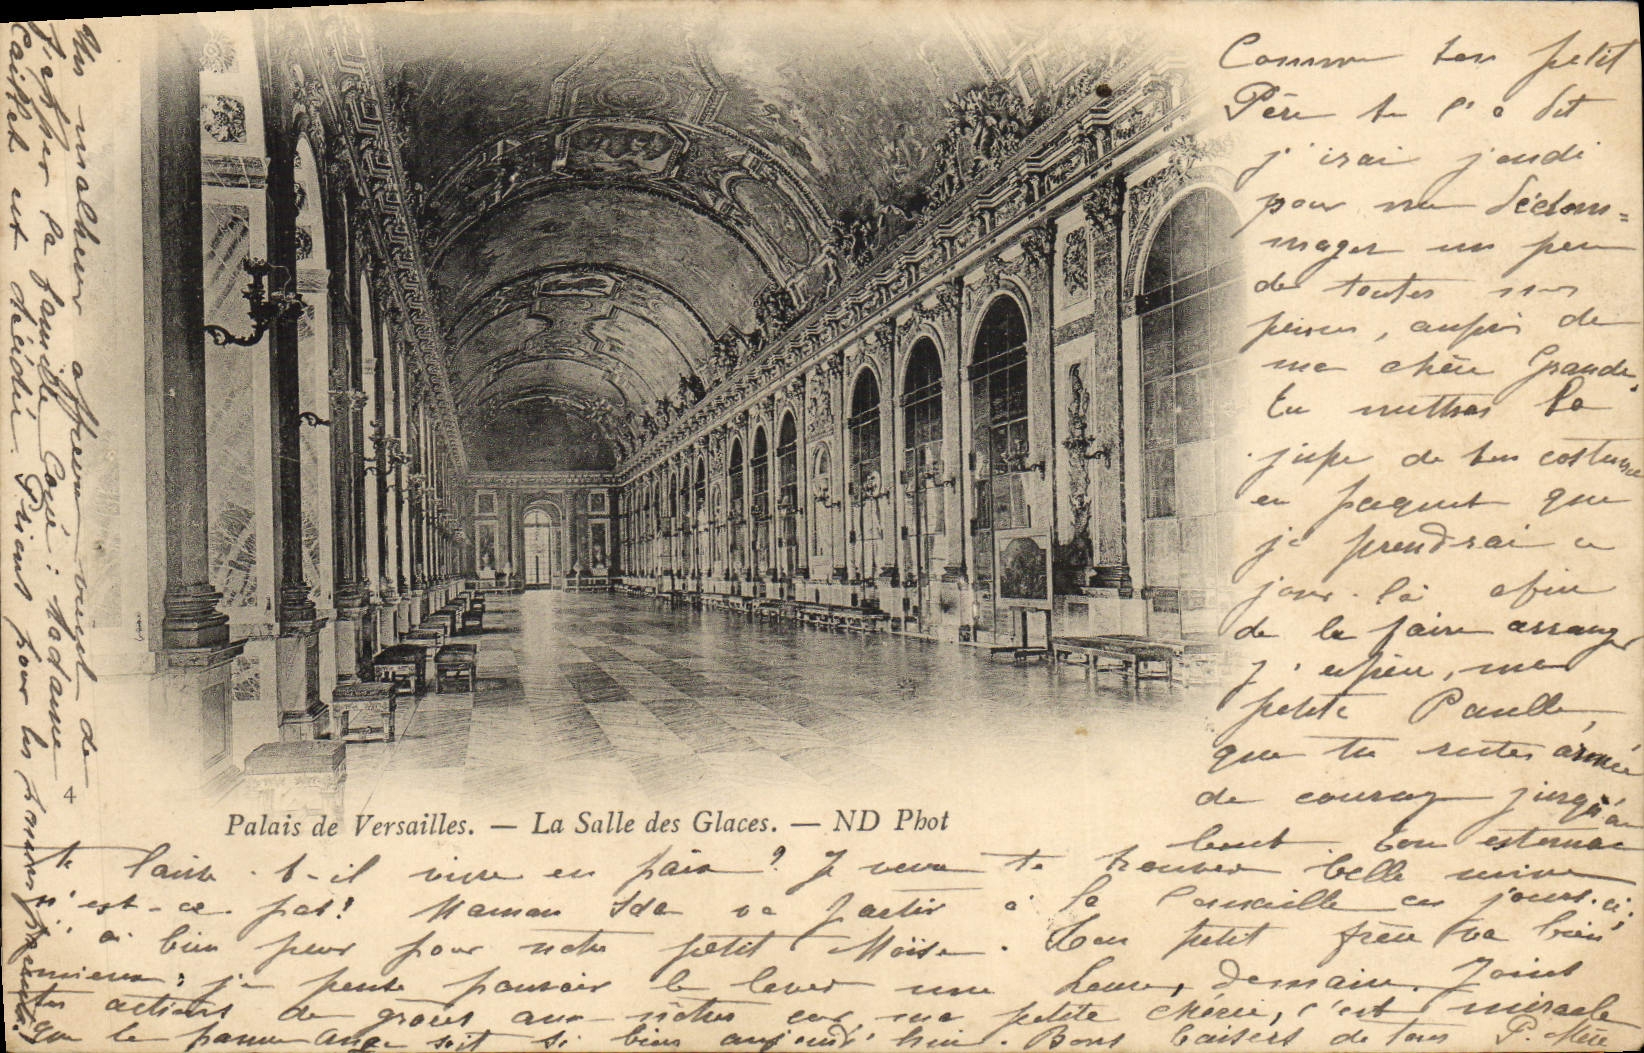 Comme ton petit
Père te l'a dit
j'irai jeudi
pour me dédom=
mager un peu
de toutes mes
peines, auprès de
ma chère Grande,
tu mettras la
jupe de ton costume
en paquet que
je prendrai ce
jour-là afin
de la faire arranger
J'espère, ma
petite Paulle,
que tu restes armée
de courage jusqu'au
bout. Ton estomac
te laisse-t-il vivre en paix ? Je veux te trouver belle mine
n'est-ce pas! Maman Ida va partir à la ces jours-ci;
j'ai bien peur pour notre petit Moïse. Ton petit frère va bien
mieux; je pense pouvoir le lever une heure, demain. Joins
tes actions de grâces aux nôtres car, ma petite chérie, c'est miracle
que le pauvre Ange soit si bien aujourd'hui. Bons baisers de tous P. Mère
Un malheur affreux vient de
frapper la famille : Madame
est décédée. Prions pour les
4
Palais de Versailles. — La Salle des Glaces. — ND Phot